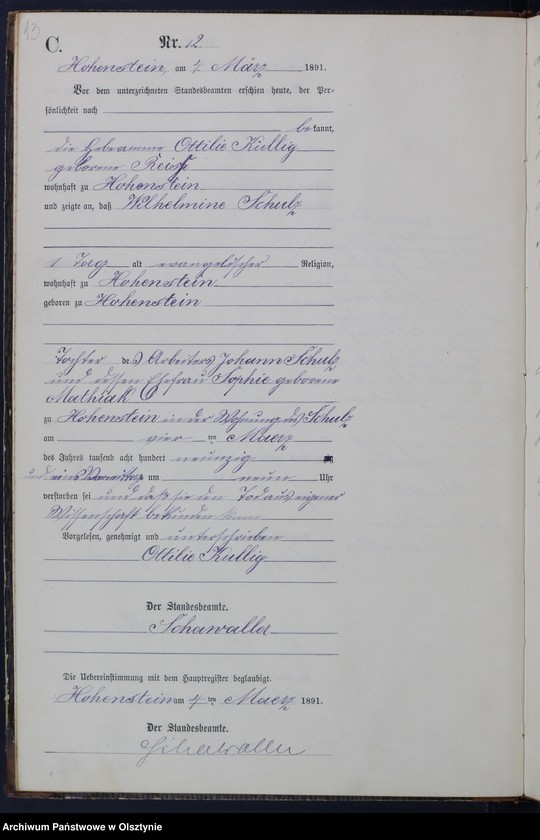 13
C.
Nr. 12
Hohenstein, am 4. März 1891.
Vor dem unterzeichneten Standesbeamten erschien heute, der Per-
sönlichkeit nach
bekannt,
die Hebeamme Ottilie Kullig
geborene Reiss
wohnhaft zu Hohenstein
und zeigte an, daß Wilhelmine Schulz
1 Tag alt evangelischer Religion,
wohnhaft zu Hohenstein
geboren zu Hohenstein
Tochter des Arbeiters Johann Schulz
und dessen Ehefrau Sophie geborene
Mathiak
zu Hohenstein in der Wohnung des Schulz
am vier ten Maerz
des Jahres tausend acht hundert neunzig
und eins Vormittags um neun Uhr
verstorben sei und daß sie den Tod aus eigener
Wissenschaft bekunden kann
Vorgelesen, genehmigt und unterschrieben
Ottilie Kullig
Der Standesbeamte.
Schawaller
Die Uebereinstimmung mit dem Hauptregister beglaubigt.
Hohenstein am 4 ten Maerz 1891.
Der Standesbeamte.
Schawaller
Archiwum Państwowe w Olsztynie